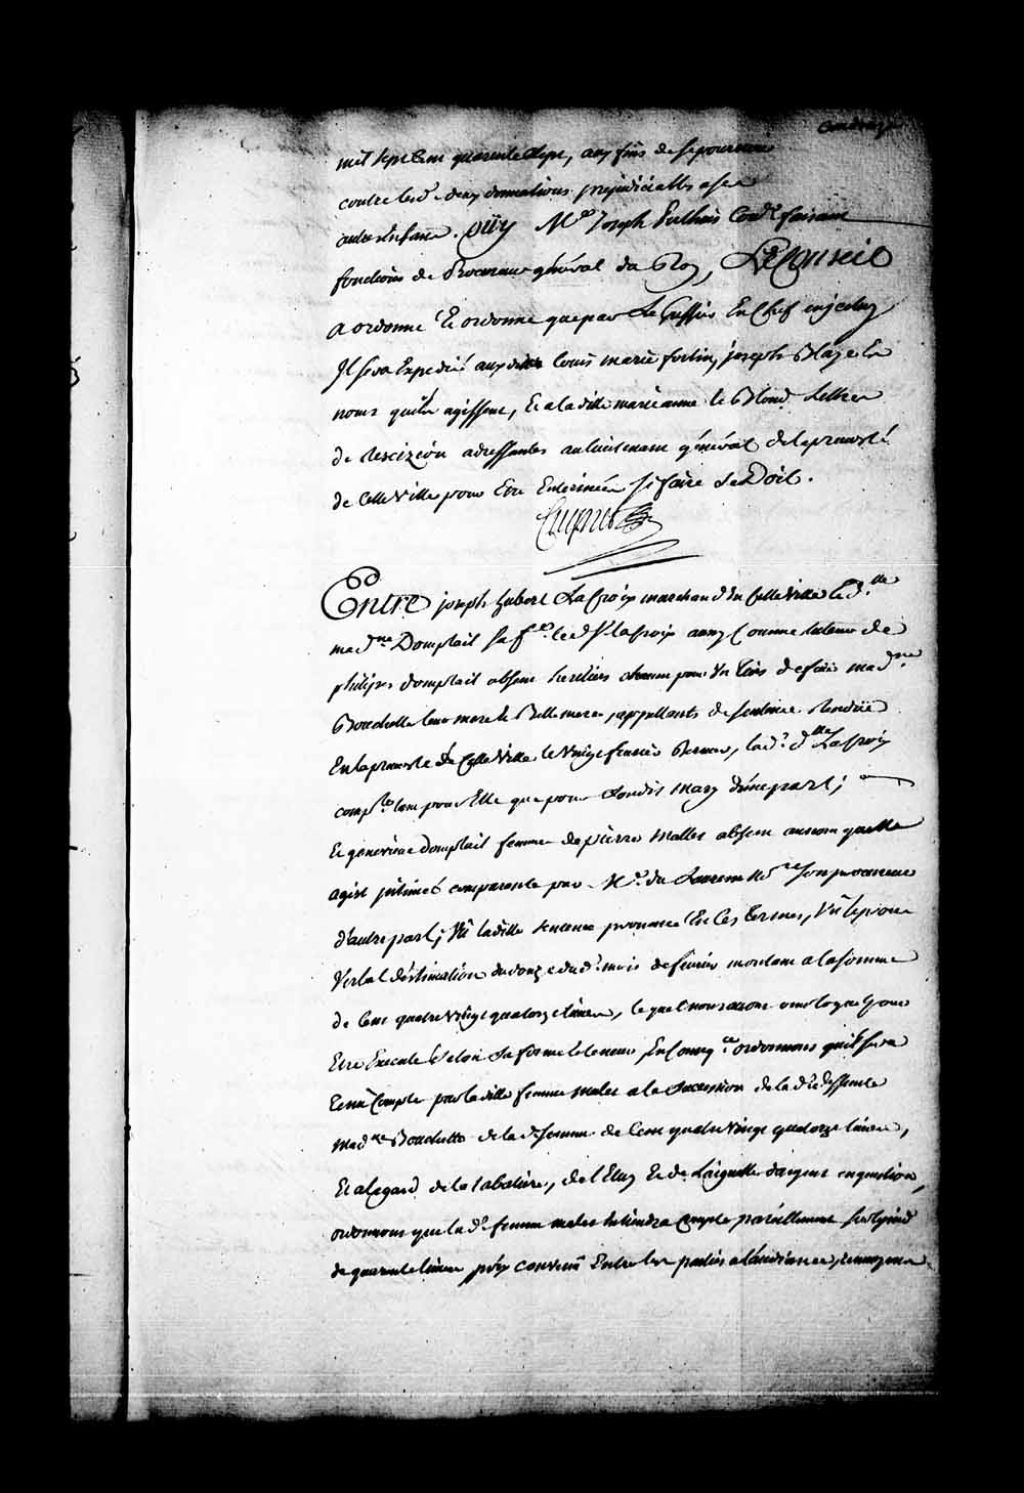 mil sept cent quarante sept, aux fins de se pourvoir
contre lesd. deux donnations prejudiciables a ses
autres Enfans. Oüy Me Joseph Perthuis Coner faisant
fonctions de Procureur général du Roy, Le Conseil
a ordonné Et ordonne que par Le Greffier En Chef en jceluy
Il sera Expedié auxdits Louis marie fortin, joseph Blaze Es
noms qu'ils agissent, Et a ladite marieanne le Blond Lettres
de Rescizion adressantes au Lieutenant général de la prevosté
de Cette Ville pour Etre Enterinées si faire se Doit.
Entre joseph hubert LaCroix marchand En Cette Ville Et dlle
madne Domptail sa fe. led. Sr lacroix aux Comme tuteur de
philipes domptail absent heritiers chacun pour Un tiers de feüe madne
Bouchette leur mere et Belle mere, appellants de sentence Rendüe
En la prevosté de Cette Ville le Vingt fevrier dernier, lad. dlle Lacroix
compte tant pour Elle que pour Sondit Mary d'une part;
Et geneviéve domptail femme de pierre mallet absent au nom quelle
agist jntimée comparante par Me. du Laurent Nore son procureur
d'autre part; Vû ladite sentence prononcée En Ces termes, Vû le procés
Verbal d'éstimation du douze dud. mois de fevrier montant a la somme
de Cent quatre Vingt quatorze Livres, lequel nous avons omologué pour
Etre Executé Selon sa forme et teneur, En Conseqce ordonnons qu'il sera
tenu Compte par ladite femme mallet a la Succession de lad. deffunte
Madne Bouchette de lad. somme de Cent quatre Vingt quatorze Livres,
Et a légard de la tabatiere, de l'Etuy Et de L'aiguille d'argent en question,
ordonnons que lad. femme mallet En tiendra Compte pareillement sur le pied
de quarante Livres prix convenu Entre les parties a l'audiance,